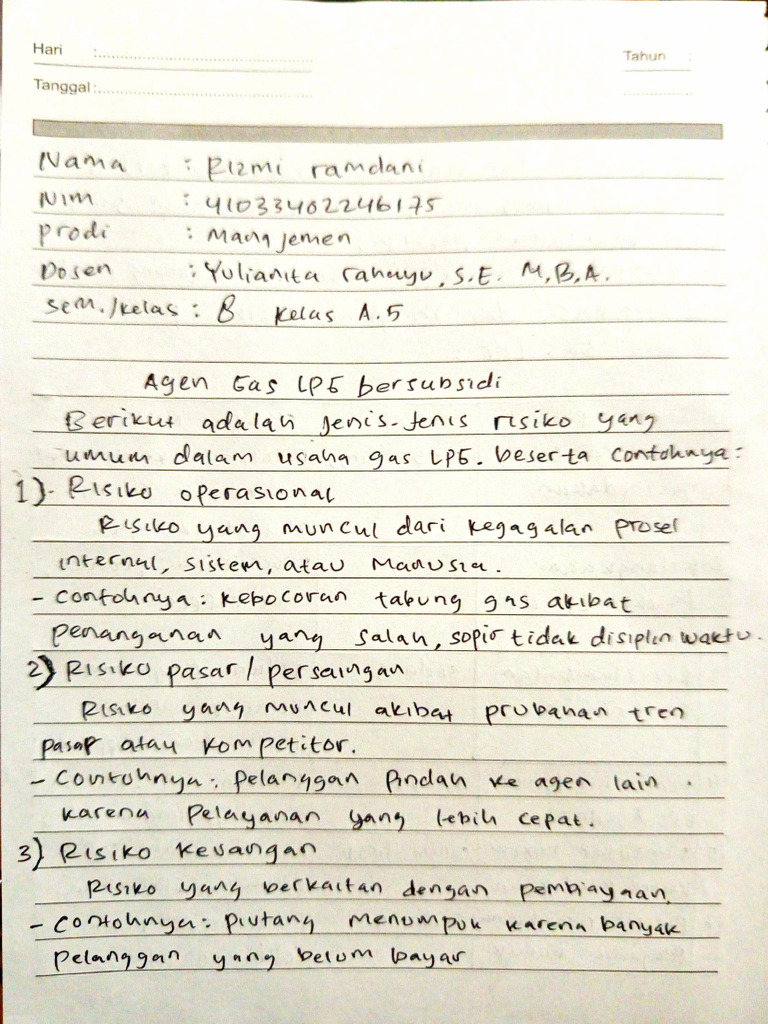 Hari :
Tahun :
Tanggal :
Nama : Rizmi ramdani
Nim : 41033402246175
prodi : Manajemen
Dosen : Yulianita rahayu, S.E. M.B.A.
sem./kelas : B kelas A.5
Agen Gas LPG bersubsidi
Berikut adalah jenis-jenis risiko yang
umum dalam usaha gas LPG. beserta contohnya:
1). Risiko operasional
Risiko yang muncul dari kegagalan prosel
internal, sistem, atau Manusia.
- contohnya : kebocoran tabung gas akibat
penanganan yang salah, sopir tidak disiplin waktu.
2) Risiko pasar / persaingan
Risiko yang muncul akibat prubahan tren
pasar atau kompetitor.
- Contohnya : pelanggan pindah ke agen lain
karena pelayanan yang lebih cepat.
3) Risiko keuangan
Risiko yang berkaitan dengan pembiayaan.
- contohnya : piutang menumpuk karena banyak
pelanggan yang belum bayar